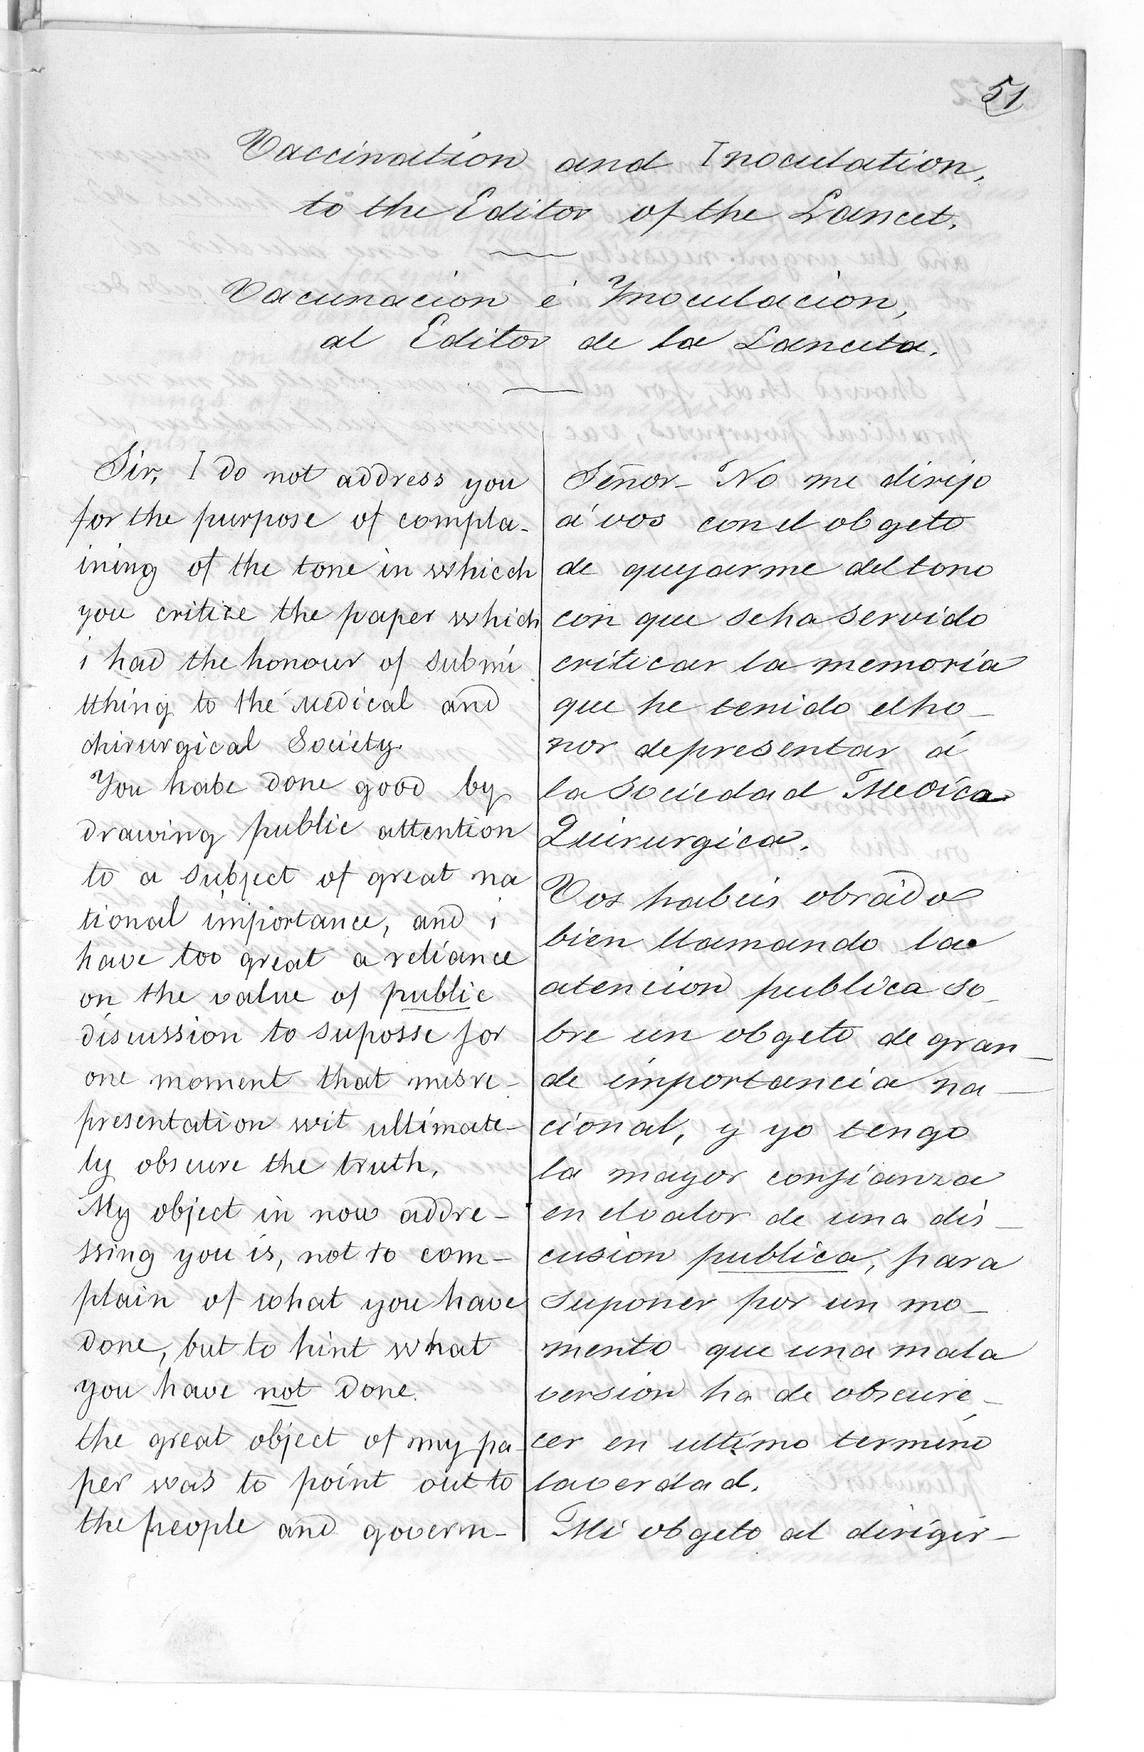 51
Vaccination and Inoculation,
to the Editor of the Lancet.
Vacunacion é Inoculacion,
al Editor de la Lanceta.
Sir, I do not address you
for the purpose of compla-
ining of the tone in whicch
you critize the paper which
i had the honour of submi
tthing to the Medical and
chirurgical Society.
You habe done good by
drawing public attention
to a subject of great na
tional importance, and i
have too great a reliance
on the value of public
discussion to suposse for
one moment that misre-
presentation wit ultimate-
ly obscure the truth.
My object in now addre-
ssing you is, not to com-
plain of what you have
done, but to hint what
you have not done.
the great object of my pa-
per was to point out to
the people and govern-
Señor- No me dirijo
á vos con el obgeto
de queyarme del tono
con que seha servido
criticar la memoria
que he tenido elho-
nor depresentar á
la Sociedad Medica
Quirurgica.
Vos habeis obrado
bien llamando la
atencion publica so-
bre un obgeto de gran-
de importancia na-
cional, y yo tengo
la mayor confianza
en elvalor de una dis-
cusion publica, para
suponer por un mo-
mento que una mala
version ha de obscure-
cer en ultimo termino
laverdad.
Mi obgeto al dirigir-